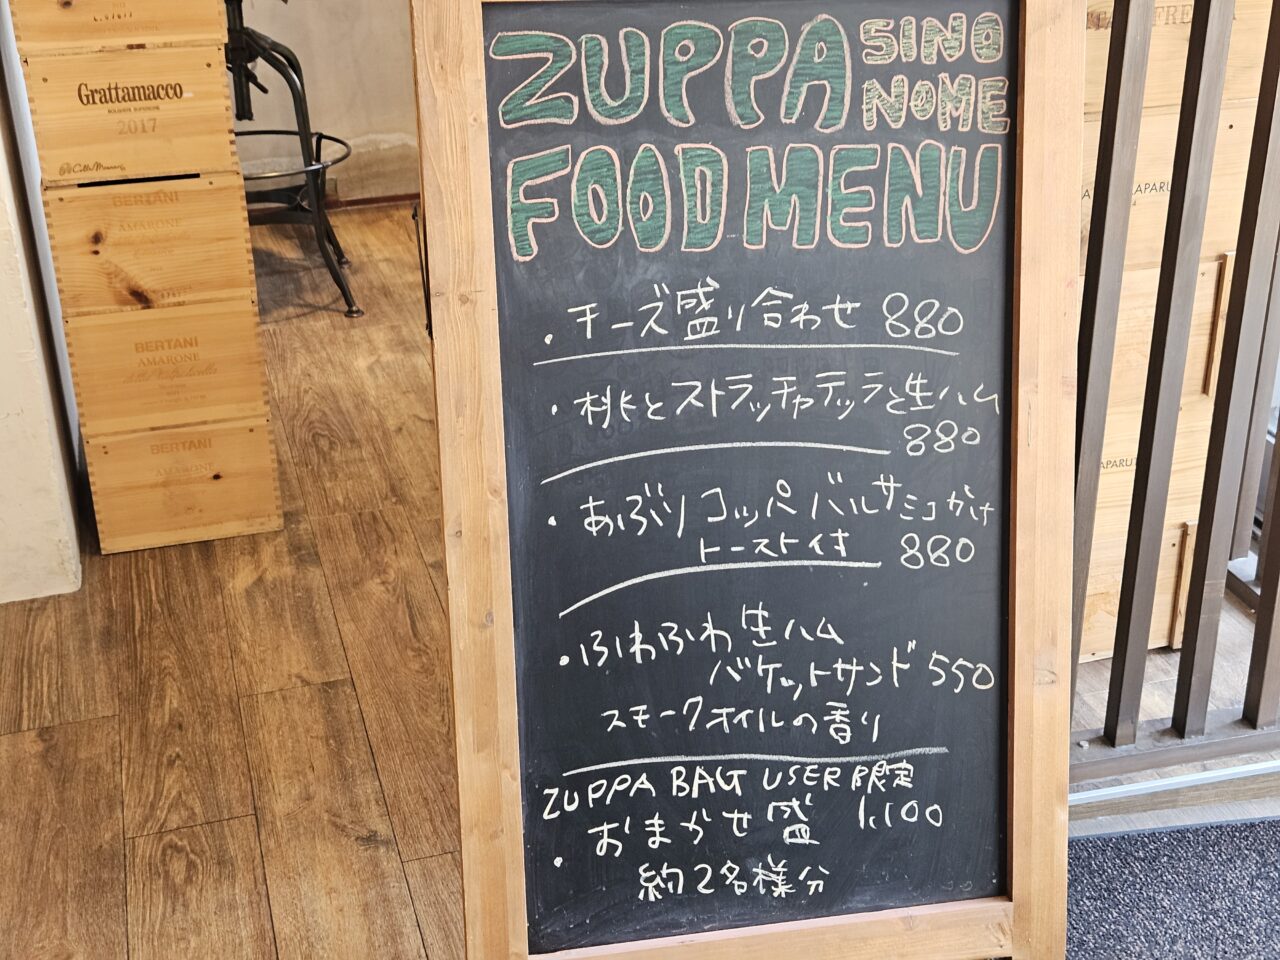 Grattamacco
BOLGHERI SUPERIORE
2017
BERTANI
AMARONE
BERTANI
AMARONE
BERTANI
AMARONE
ZUPPA SINO
NOME
FOOD MENU
・チーズ盛り合わせ 880
・桃とストラッチャテッラと生ハム
880
・あぶりコッパ バルサミコがけ
トースト付 880
・ふわふわ生ハム
バケットサンド 550
スモークオイルの香り
ZUPPA BAG USER限定
・おまかせ盛 1,100
約2名様分
APARUT